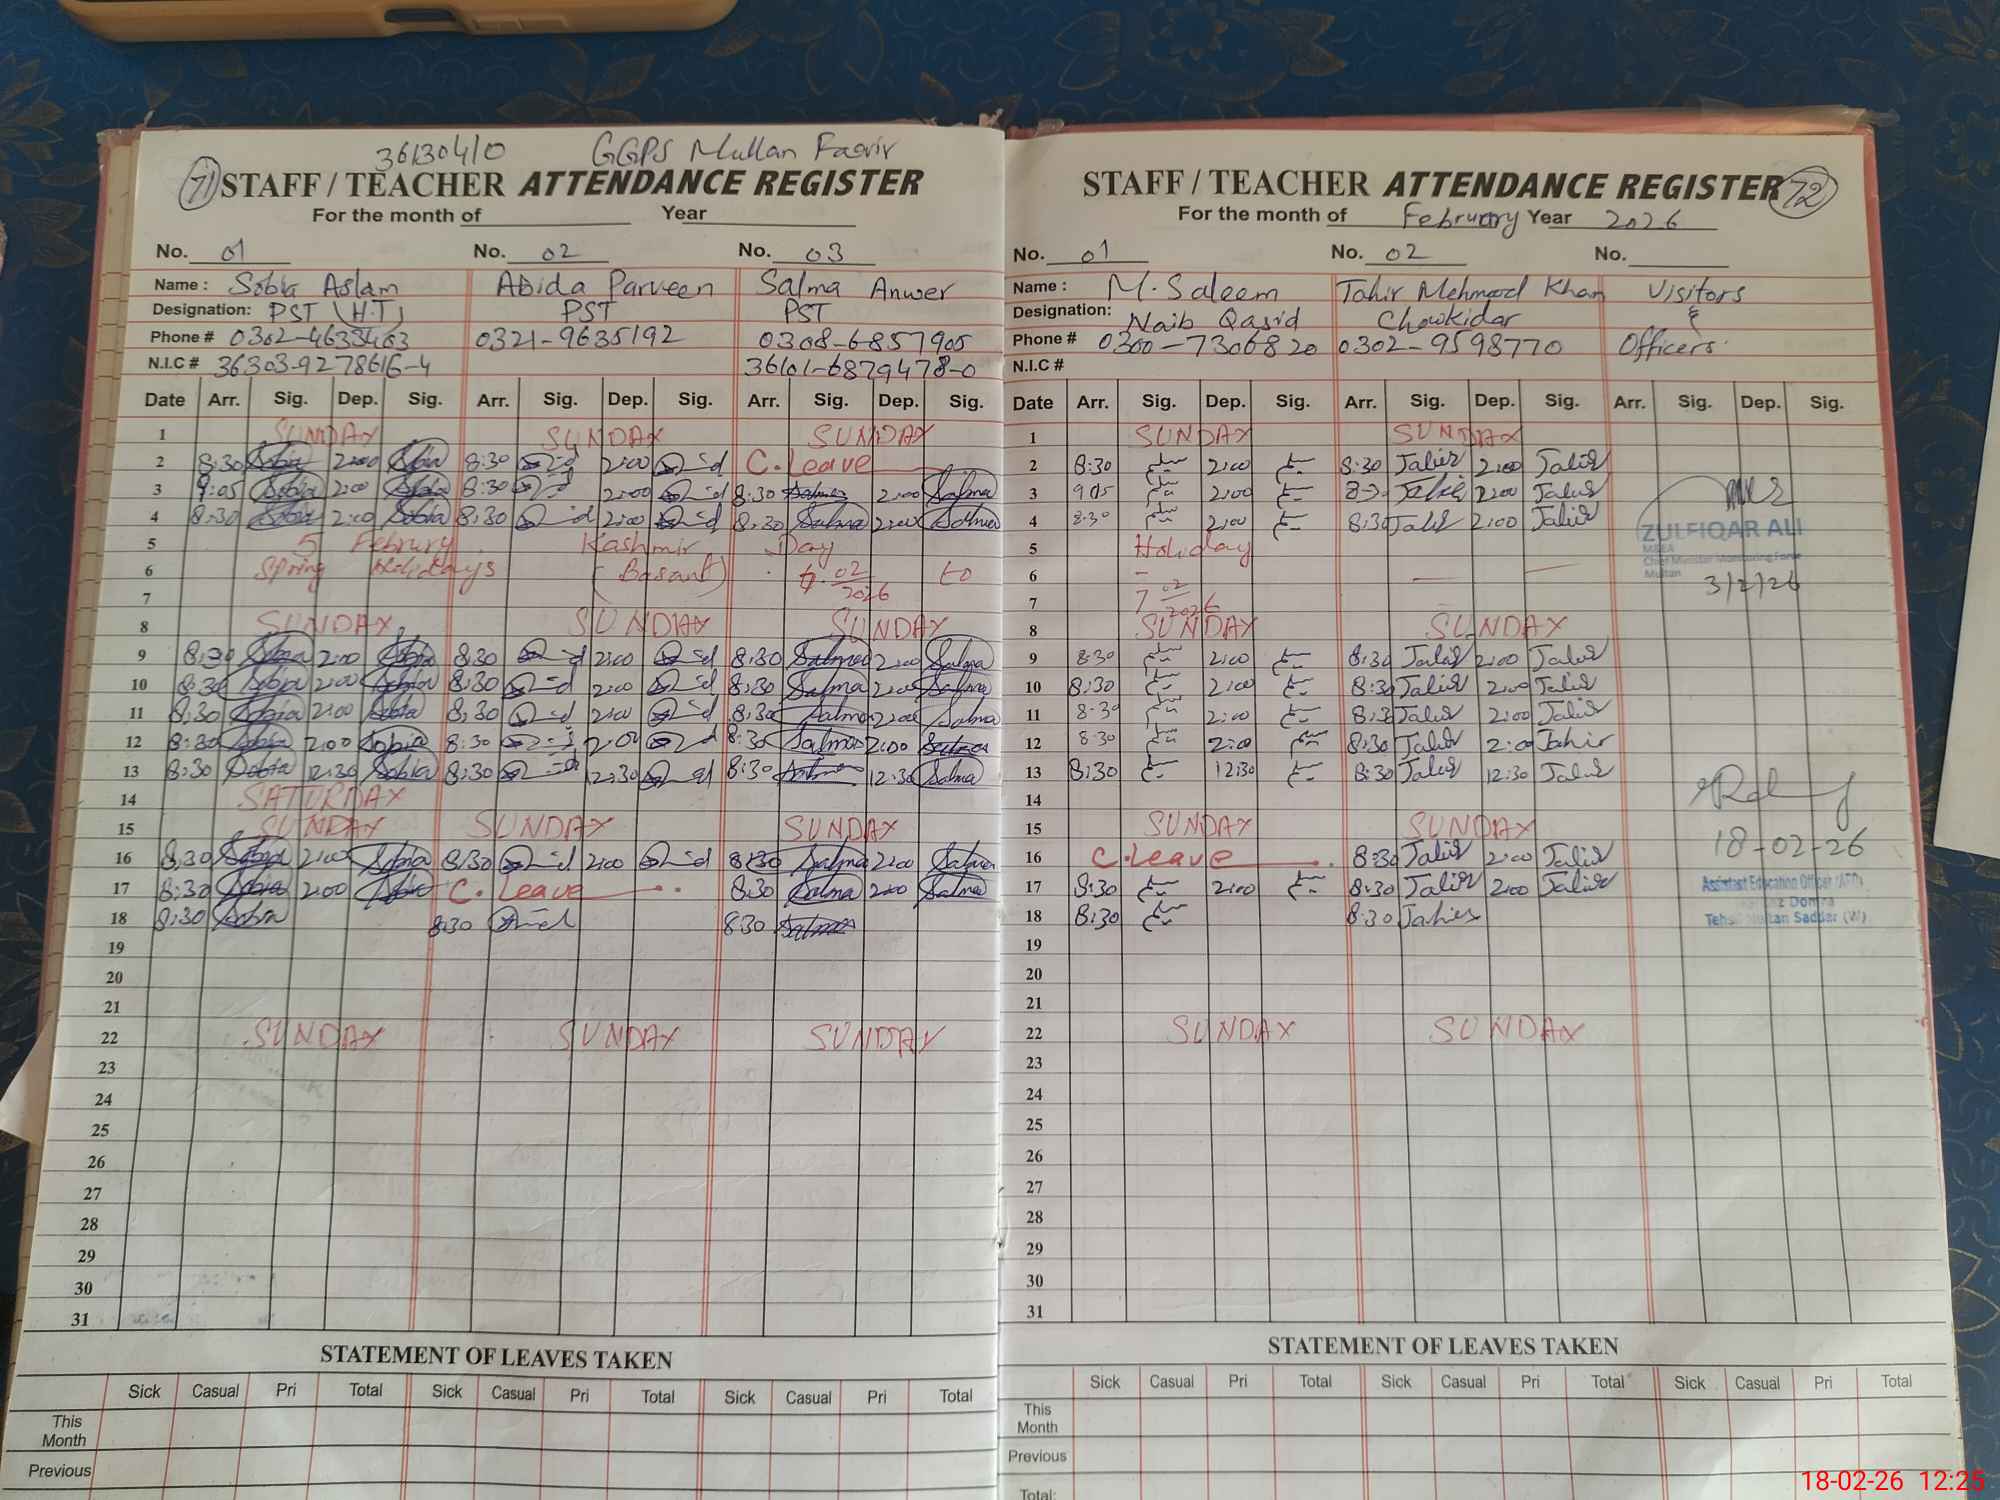 36130410 GGPS Mullan Faqir
71 STAFF / TEACHER ATTENDANCE REGISTER
For the month of Year
No. 01 No. 02 No. 03
Name : Sobia Aslam Abida Parveen Salma Anwer
Designation: PST (H.T) PST PST
Phone # 0302-4633403 0321-9635192 0308-6857905
N.I.C # 36303-9278616-4 36101-6879478-0
Date Arr. Sig. Dep. Sig. Arr. Sig. Dep. Sig. Arr. Sig. Dep. Sig.
1 SUNDAY SUNDAY SUNDAY
2 8:30 Sobia 2:00 Sobia 8:30 2:00 C. Leave
3 9:05 Sobia 2:00 Sobia 8:30 2:00 8:30 Salma 2:00 Salma
4 8:30 Sobia 2:00 Sobia 8:30 2:00 8:30 Salma 2:00 Salma
5 5 Februry Kashmir Day
6 Spring Holidays (Basant) 02/2026 to
7
8 SUNDAY SUNDAY SUNDAY
9 8:30 Sobia 2:00 Sobia 8:30 2:00 8:30 Salma 2:00 Salma
10 8:30 Sobia 2:00 Sobia 8:30 2:00 8:30 Salma 2:00 Salma
11 8:30 Sobia 2:00 Sobia 8:30 2:00 8:30 Salma 2:00 Salma
12 8:30 Sobia 2:00 Sobia 8:30 2:00 8:30 Salma 2:00 Salma
13 8:30 Sobia 12:30 Sobia 8:30 12:30 8:30 Salma 12:30 Salma
14 SATURDAY
15 SUNDAY SUNDAY SUNDAY
16 8:30 Sobia 2:00 Sobia 8:30 2:00 8:30 Salma 2:00 Salma
17 8:30 Sobia 2:00 Sobia C. Leave 8:30 Salma 2:00 Salma
18 8:30 Sobia 8:30 8:30 Salma
19
20
21
22 SUNDAY SUNDAY SUNDAY
23
24
25
26
27
28
29
30
31
STATEMENT OF LEAVES TAKEN
Sick Casual Pri Total Sick Casual Pri Total Sick Casual Pri Total
This Month
Previous
STAFF / TEACHER ATTENDANCE REGISTER 72
For the month of February Year 2026
No. 01 No. 02 No.
Name : M. Saleem Tahir Mehmood Khan Visitors
Designation: Naib Qasid Chowkidar &
Phone # 0300-7306820 0302-9598770 Officers
N.I.C #
Date Arr. Sig. Dep. Sig. Arr. Sig. Dep. Sig. Arr. Sig. Dep. Sig.
1 SUNDAY SUNDAY
2 8:30 سلیم 2:00 8:30 Tahir 2:00 Tahir
3 9:05 سلیم 2:00 Tahir 2:00 Tahir
4 8:30 سلیم 2:00 8:30 Tahir 2:00 Tahir
ZULFIQAR ALI
MEA
Chief Minister Monitoring Force
Multan
3/2/26
5 Holiday
6
7 7 02/2026
8 SUNDAY SUNDAY
9 8:30 سلیم 2:00 8:30 Tahir 2:00 Tahir
10 8:30 سلیم 2:00 8:30 Tahir 2:00 Tahir
11 8:30 سلیم 2:00 8:30 Tahir 2:00 Tahir
12 8:30 سلیم 2:00 8:30 Tahir 2:00 Tahir
13 8:30 سلیم 12:30 8:30 Tahir 12:30 Tahir
14
15 SUNDAY SUNDAY
16 C. Leave 8:30 Tahir 2:00 Tahir
17 8:30 سلیم 2:00 8:30 Tahir 2:00 Tahir
18 8:30 سلیم 8:30 Tahir
18-02-26
Assistant Education Officer
Tehsil Multan Saddar (W)
19
20
21
22 SUNDAY SUNDAY
23
24
25
26
27
28
29
30
31
STATEMENT OF LEAVES TAKEN
Sick Casual Pri Total Sick Casual Pri Total Sick Casual Pri Total
This Month
Previous
Total:
18-02-26 12:25